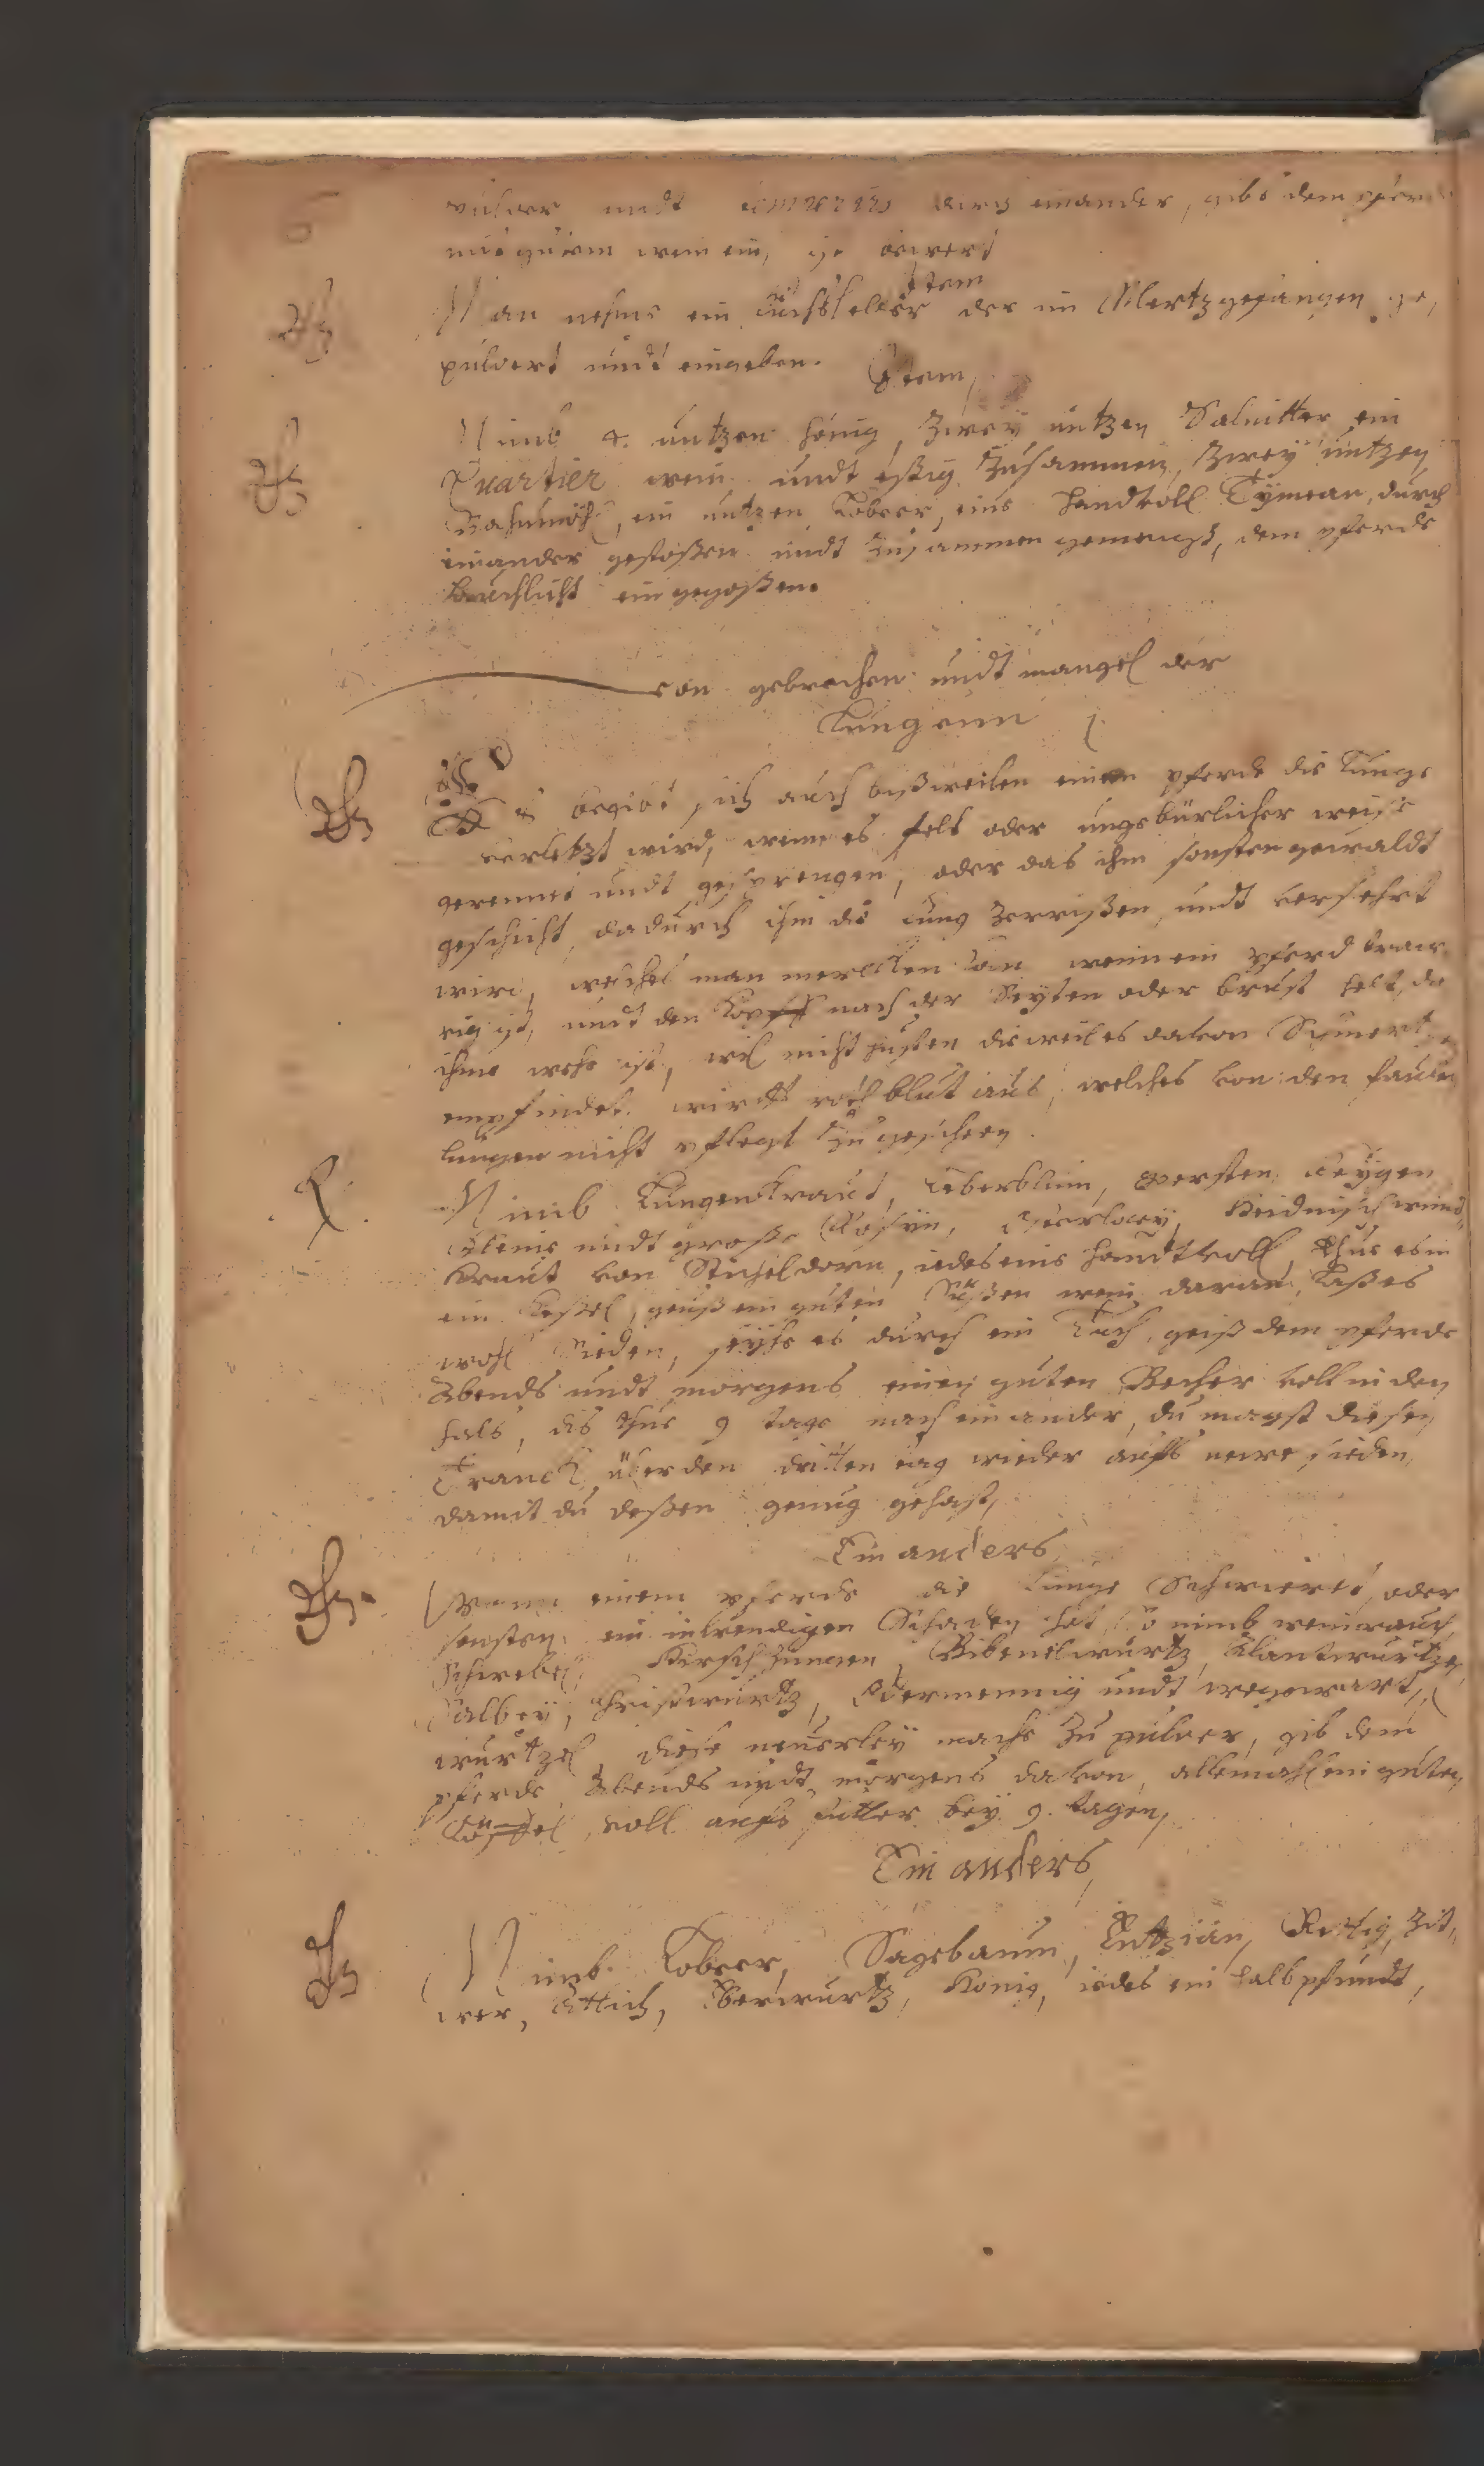 pulver undt durch einander, gibs dem pferd
mit gutem wein ein,
Item
Man nehme ein der im Mertz gefangen ge,
pulvert undt eingeben.
Item,
Nimb 4. untzen honig, Zwey untzen Salnitter ein
Quartier wein undt eßig Zusammen, Zwey untzen
Baumöhl, ein untzen Lobeer, eine handtvoll Tymean, durch
einander gestoßen undt Zusammen gemengt, dem pferde
eingegoßen.
von gebrechen undt mangel der
Lungenn
Es begibt sich auch bißweilen einem pferde die Lunge
verletzt wird, wenn es felt oder ungebürlicher weiße
gerennet undt gesprengen, oder das ihm sonsten gewaldt
geschicht, dadurch ihm die Lung Zerrißen undt versehrt
wird, welches man mercken kan wenn ein pferd traw,
rig ist, undt den Kopff nach der Seyten oder brust helt, da
ihme wehe ist, wil nicht husten dieweil es davon Schmertzen
empfindet. wirfft roth blut aus, welches von den faulen
lungen nicht pflegt Zu gescheen.
Nimb Lungenkraut, Leberblum, gersten, Feygen
kleine undt große Rosyn, Heidnisch wund,
kraut von Sticheldorn, iedes eine handtvoll, thue es in
ein keßel, geuß ein guten Süßen wein daran, Laß es
wohl Sieden, seyhe es durch ein Tuch, geiß dem pferde
Abends undt morgens einen guten Becher voll in den
hals, dis thue 9 tage nach einander, du magst diesen
Tranck über den dritten tag wieder auffs newe sieden,
damit du deßen genug gehast,
Ein anders,
Wann einem pferde die Lunge Schwieret, oder
sonsten ein inwendigen Schaden hat, So nimb weinrauch,
Schwebel, Hirschzungen, Bibenelwurtz, Alantwurtze,
Salbey, Christwurtz, Odermennig undt wegewart,
wurtzel, diese neuerley mache Zu pulver, gib dem
pferde Abends undt morgens davon, allemahl ein guten
Löffel voll auffs futter bey 9. tagen,
Ein anders,
Nimb. Lobeer, Sagebaum, Entzian, Rettig, Zit,
wer, Attich, Eberwurtz, Honig, iedes ein halb pfundt,